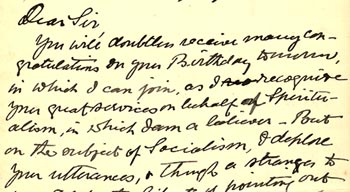 Dear Sir
You will doubtless receive many con-
gratulations on your Birthday tomorrow,
in which I can join, as I recognize
your great services on behalf of Spiritu-
alism, in which I am a believer - But
on the subject of Socialism, I deplore
your utterances, & though a stranger to
pointing out